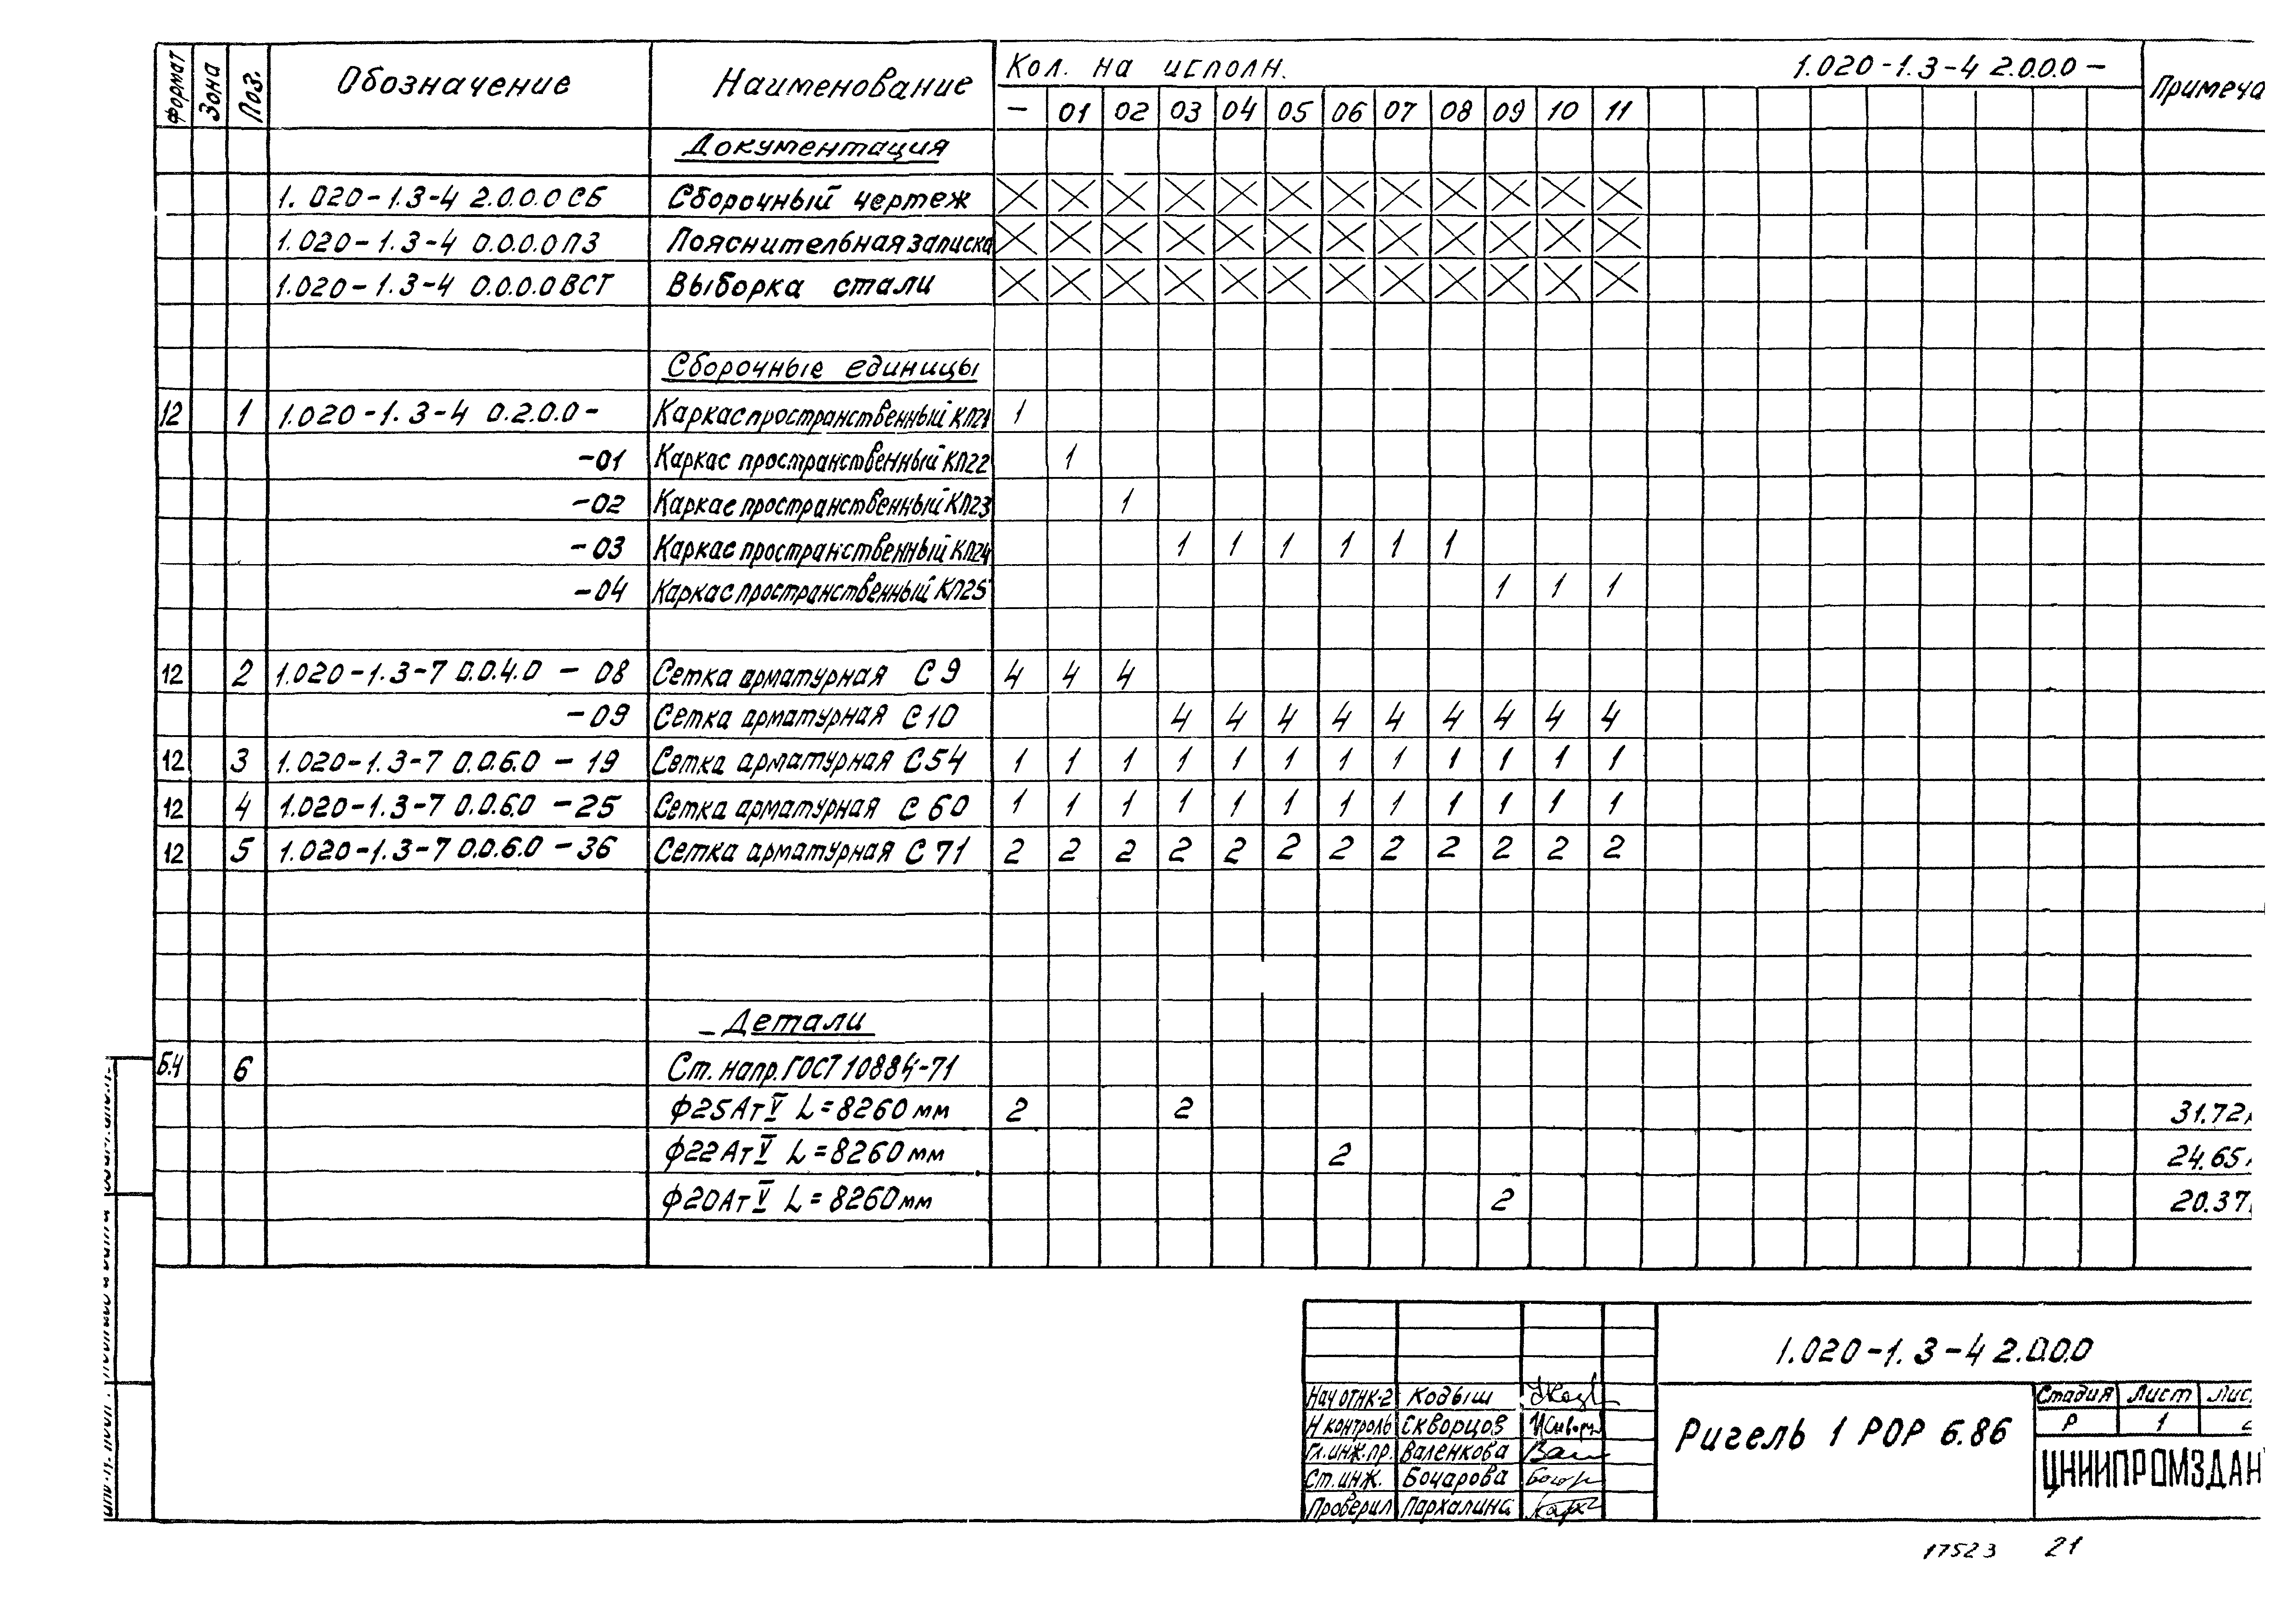 Формат Зона Поз. Обозначение Наименование Кол. на исполн. 1.020-1.3-4 2.0.0.0 —
— 01 02 03 04 05 06 07 08 09 10 11
Документация
1.020-1.3-4 2.0.0.0 СБ Сборочный чертеж
1.020-1.3-4 0.0.0.0 ПЗ Пояснительная записка
1.020-1.3-4 0.0.0.0 ВСТ Выборка стали
Сборочные единицы
12 1 1.020-1.3-4 0.2.0.0- Каркас пространственный КП21 1
-01 Каркас пространственный КП22 1
-02 Каркас пространственный КП23 1
-03 Каркас пространственный КП24 1 1 1 1 1 1
-04 Каркас пространственный КП25 1 1 1
12 2 1.020-1.3-7 0.0.4.0 - 08 Сетка арматурная С 9 4 4 4
-09 Сетка арматурная С 10 4 4 4 4 4 4 4 4 4
12 3 1.020-1.3-7 0.0.6.0 - 19 Сетка арматурная С 54 1 1 1 1 1 1 1 1 1 1 1 1
12 4 1.020-1.3-7 0.0.6.0 - 25 Сетка арматурная С 60 1 1 1 1 1 1 1 1 1 1 1 1
12 5 1.020-1.3-7 0.0.6.0 - 36 Сетка арматурная С 71 2 2 2 2 2 2 2 2 2 2 2 2
Детали
Б.Ч 6 Ст. напр. ГОСТ 10884-71
ф25АтV L=8260 мм 2 2 31.72
ф22АтV L=8260 мм 2 24.65
ф20АтV L=8260 мм 2 20.37
1.020-1.3-4 2.0.0.0
Нач ОТНК-2 Кодыш
Н контроль Скворцов
Гл. инж. пр. Валенкова
Ст. инж. Бочарова
Проверил Пархалина
Ригель 1 РОР 6.86
Стадия Лист
Р 1
17523 21